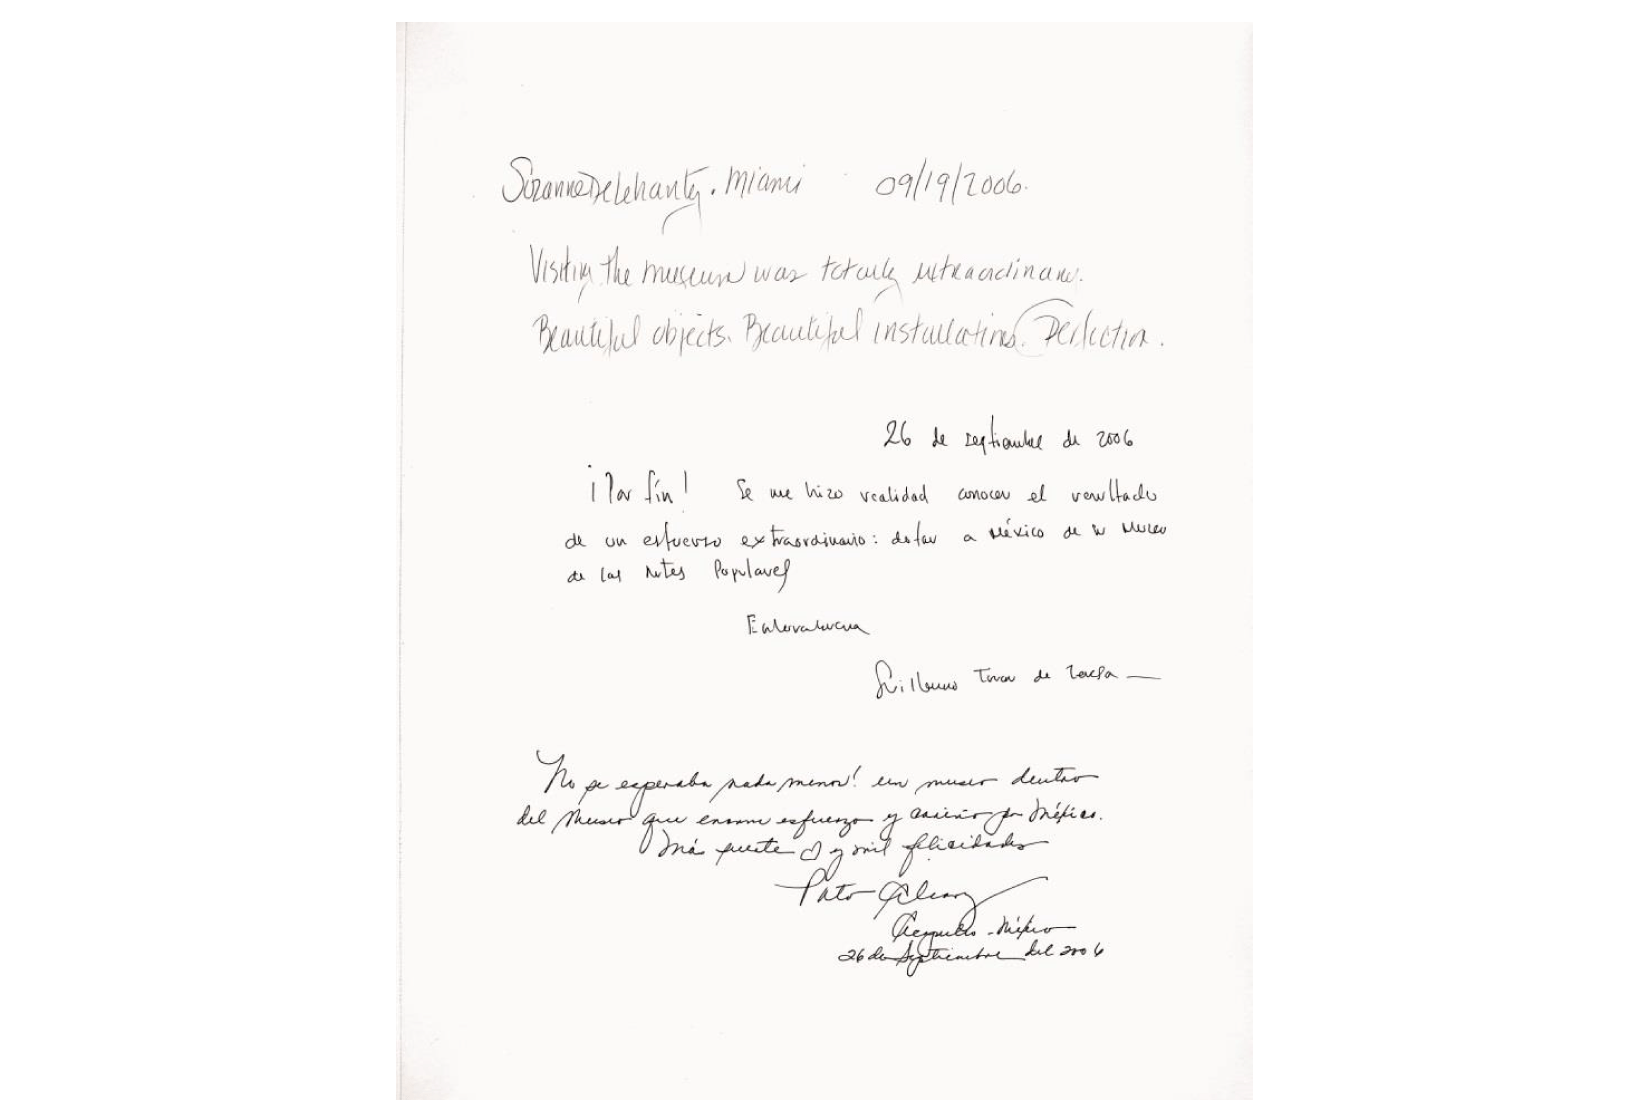 Suzanne Delehanty. Miami 09/19/2006.
Visiting the museum was totally extraordinary.
Beautiful objects. Beautiful installations. Perfection.
26 de septiembre de 2006
¡Por fín! Se me hizo realidad conocer el resultado
de un esfuerzo extraordinario: dotar a México de su Museo
de las Artes Populares
Enhorabuena
Guillermo Tovar de Teresa
No se esperaba nada menor! un museo dentro
del Museo que enorme esfuerzo y cariño por México.
Más suerte ♡ y mil felicidades
Pato
Acapulco - México
26 de Septiembre del 2006